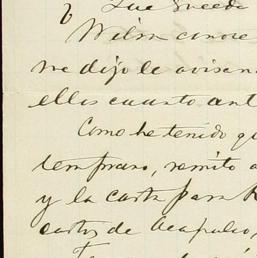 que
Wilson
me dijo le avisan
ellos cuanto ant
Como he tenido qu
temprano, remito a
y la carta para
cartas de Acapulco,